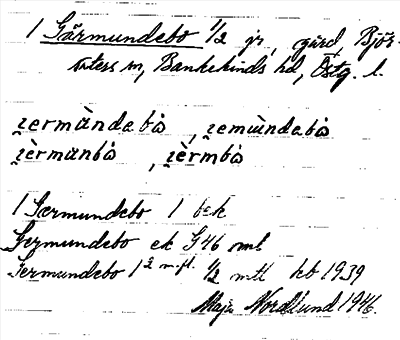 1 Gärmundebo 1/2 jr, gård, Björ-
säters sn, Bankekinds hd, Östg. l.
ʒermàndabȯ, ʒemùndabȯ
ʒèrmanbȯ, ʒèrmbȯ
1 Germundebo 1 bek
Germundebo ek G46 ml
Germundebo 1 2 m. fl. 1/2 mtl kb 1939
Maja Nordlund 1946.